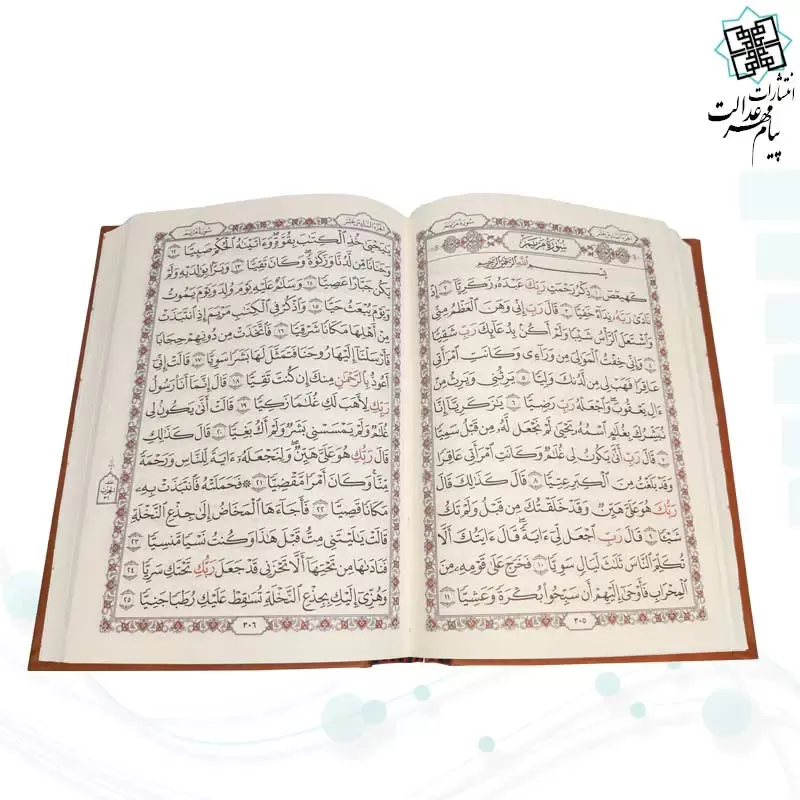 انتشارات
پیام مهر عدالت
الجُزءُ السَّادِسَ عَشَرَ
سُورَةُ مَرْيَمَ
سُورَةُ مَرْيَمَ
بِسْمِ اللَّهِ الرَّحْمَٰنِ الرَّحِيمِ
كهيعص ١ ذِكْرُ رَحْمَتِ رَبِّكَ عَبْدَهُ زَكَرِيَّا ٢ إِذْ
نَادَىٰ رَبَّهُ نِدَاءً خَفِيًّا ٣ قَالَ رَبِّ إِنِّي وَهَنَ الْعَظْمُ مِنِّي
وَاشْتَعَلَ الرَّأْسُ شَيْبًا وَلَمْ أَكُنْ بِدُعَائِكَ رَبِّ شَقِيًّا
٤ وَإِنِّي خِفْتُ الْمَوَٰلِيَ مِنْ وَرَاءِي وَكَانَتِ امْرَأَتِي
عَاقِرًا فَهَبْ لِي مِنْ لَدُنْكَ وَلِيًّا ٥ يَرِثُنِي وَيَرِثُ مِنْ
ءَالِ يَعْقُوبَ وَاجْعَلْهُ رَبِّ رَضِيًّا ٦ يَٰزَكَرِيَّا إِنَّا
نُبَشِّرُكَ بِغُلَٰمٍ اسْمُهُ يَحْيَىٰ لَمْ نَجْعَلْ لَهُ مِنْ قَبْلُ سَمِيًّا
٧ قَالَ رَبِّ أَنَّىٰ يَكُونُ لِي غُلَٰمٌ وَكَانَتِ امْرَأَتِي عَاقِرًا
وَقَدْ بَلَغْتُ مِنَ الْكِبَرِ عِتِيًّا ٨ قَالَ كَذَٰلِكَ قَالَ
رَبُّكَ هُوَ عَلَيَّ هَيِّنٌ وَقَدْ خَلَقْتُكَ مِنْ قَبْلُ وَلَمْ تَكُ
شَيْئًا ٩ قَالَ رَبِّ اجْعَلْ لِي ءَايَةً قَالَ ءَايَتُكَ أَلَّا
تُكَلِّمَ النَّاسَ ثَلَٰثَ لَيَالٍ سَوِيًّا ١٠ فَخَرَجَ عَلَىٰ قَوْمِهِ مِنَ
الْمِحْرَابِ فَأَوْحَىٰ إِلَيْهِمْ أَنْ سَبِّحُوا بُكْرَةً وَعَشِيًّا ١١
٣٠٥
الجُزءُ السَّادِسَ عَشَرَ
سُورَةُ مَرْيَمَ
يَٰيَحْيَىٰ خُذِ الْكِتَٰبَ بِقُوَّةٍ وَءَاتَيْنَٰهُ الْحُكْمَ صَبِيًّا ١٢
وَحَنَانًا مِنْ لَدُنَّا وَزَكَوٰةً وَكَانَ تَقِيًّا ١٣ وَبَرًّا بِوَٰلِدَيْهِ وَلَمْ
يَكُنْ جَبَّارًا عَصِيًّا ١٤ وَسَلَٰمٌ عَلَيْهِ يَوْمَ وُلِدَ وَيَوْمَ يَمُوتُ
وَيَوْمَ يُبْعَثُ حَيًّا ١٥ وَاذْكُرْ فِي الْكِتَٰبِ مَرْيَمَ إِذِ انْتَبَذَتْ
مِنْ أَهْلِهَا مَكَانًا شَرْقِيًّا ١٦ فَاتَّخَذَتْ مِنْ دُونِهِمْ حِجَابًا
فَأَرْسَلْنَا إِلَيْهَا رُوحَنَا فَتَمَثَّلَ لَهَا بَشَرًا سَوِيًّا ١٧ قَالَتْ إِنِّي
أَعُوذُ بِالرَّحْمَٰنِ مِنْكَ إِنْ كُنْتَ تَقِيًّا ١٨ قَالَ إِنَّمَا أَنَا رَسُولُ
رَبِّكِ لِأَهَبَ لَكِ غُلَٰمًا زَكِيًّا ١٩ قَالَتْ أَنَّىٰ يَكُونُ لِي
غُلَٰمٌ وَلَمْ يَمْسَسْنِي بَشَرٌ وَلَمْ أَكُ بَغِيًّا ٢٠ قَالَ كَذَٰلِكِ
قَالَ رَبُّكِ هُوَ عَلَيَّ هَيِّنٌ وَلِنَجْعَلَهُ ءَايَةً لِلنَّاسِ وَرَحْمَةً
مِنَّا وَكَانَ أَمْرًا مَقْضِيًّا ٢١ ۞ فَحَمَلَتْهُ فَانْتَبَذَتْ بِهِ
مَكَانًا قَصِيًّا ٢٢ فَأَجَاءَهَا الْمَخَاضُ إِلَىٰ جِذْعِ النَّخْلَةِ
قَالَتْ يَٰلَيْتَنِي مِتُّ قَبْلَ هَٰذَا وَكُنْتُ نَسْيًا مَنْسِيًّا ٢٣
فَنَادَىٰهَا مِنْ تَحْتِهَا أَلَّا تَحْزَنِي قَدْ جَعَلَ رَبُّكِ تَحْتَكِ سَرِيًّا ٢٤
وَهُزِّي إِلَيْكِ بِجِذْعِ النَّخْلَةِ تُسَٰقِطْ عَلَيْكِ رُطَبًا جَنِيًّا ٢٥
٣٠٦
الحزب
٣١